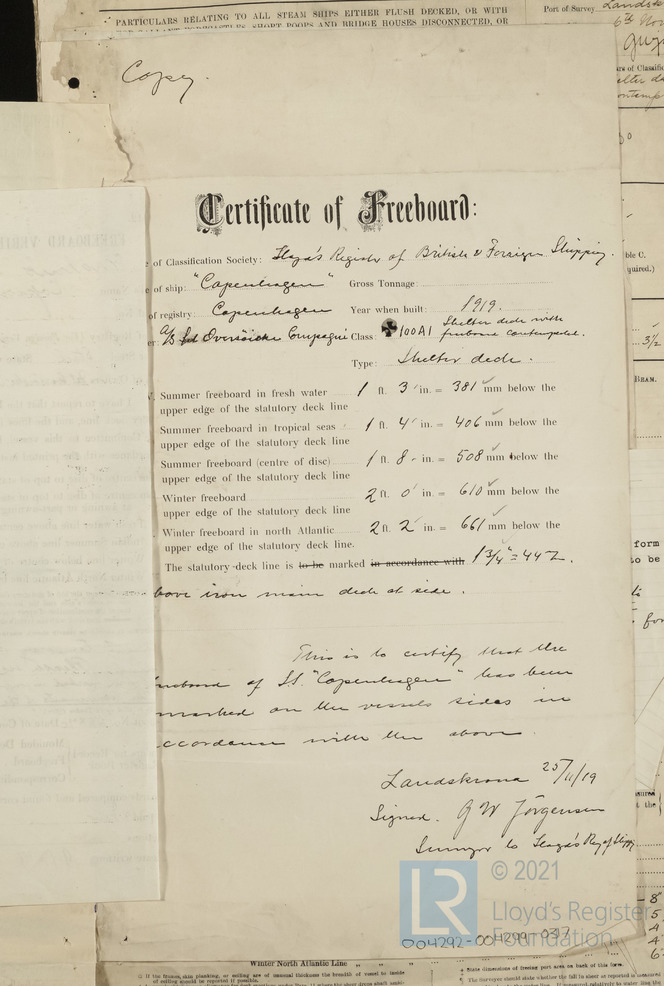 PARTICULARS RELATING TO ALL STEAM SHIPS EITHER FLUSH DECKED, OR WITH
Port of Survey
Copy.
Certificate of Freeboard:
e of Classification Society: Lloyd's Register of British & Foreign Shipping.
e of ship: "Copenhagen" Gross Tonnage:
of registry: Copenhagen Year when built: 1919.
er: A/S Det Oversöiske Compagni Class: 100A1 Shelter deck with
freeboard contemplated.
Type: Shelter deck.
Summer freeboard in fresh water 1 ft. 3 in. = 381 mm below the
upper edge of the statutory deck line
Summer freeboard in tropical seas 1 ft. 4 in. = 406 mm below the
upper edge of the statutory deck line
Summer freeboard (centre of disc) 1 ft. 8 - in. = 508 mm below the
upper edge of the statutory deck line
Winter freeboard 2 ft. 0 in. = 610 mm below the
upper edge of the statutory deck line
Winter freeboard in north Atlantic 2 ft. 2 in. = 661 mm below the
upper edge of the statutory deck line.
The statutory deck line is to be marked in accordance with 1 3/4" = 44
bove iron main deck at side.
This is to certify that the
reeboard of SS. "Copenhagen" has been
marked on the vessels sides in
ccordance with the above.
Landskrona 25/11/19
Signed. G W Jörgensen
Surveyor to Lloyd's Reg of Shipp
LR
© 2021
Lloyd's Register
Foundation
004292-004299-0317
Winter North Atlantic Line